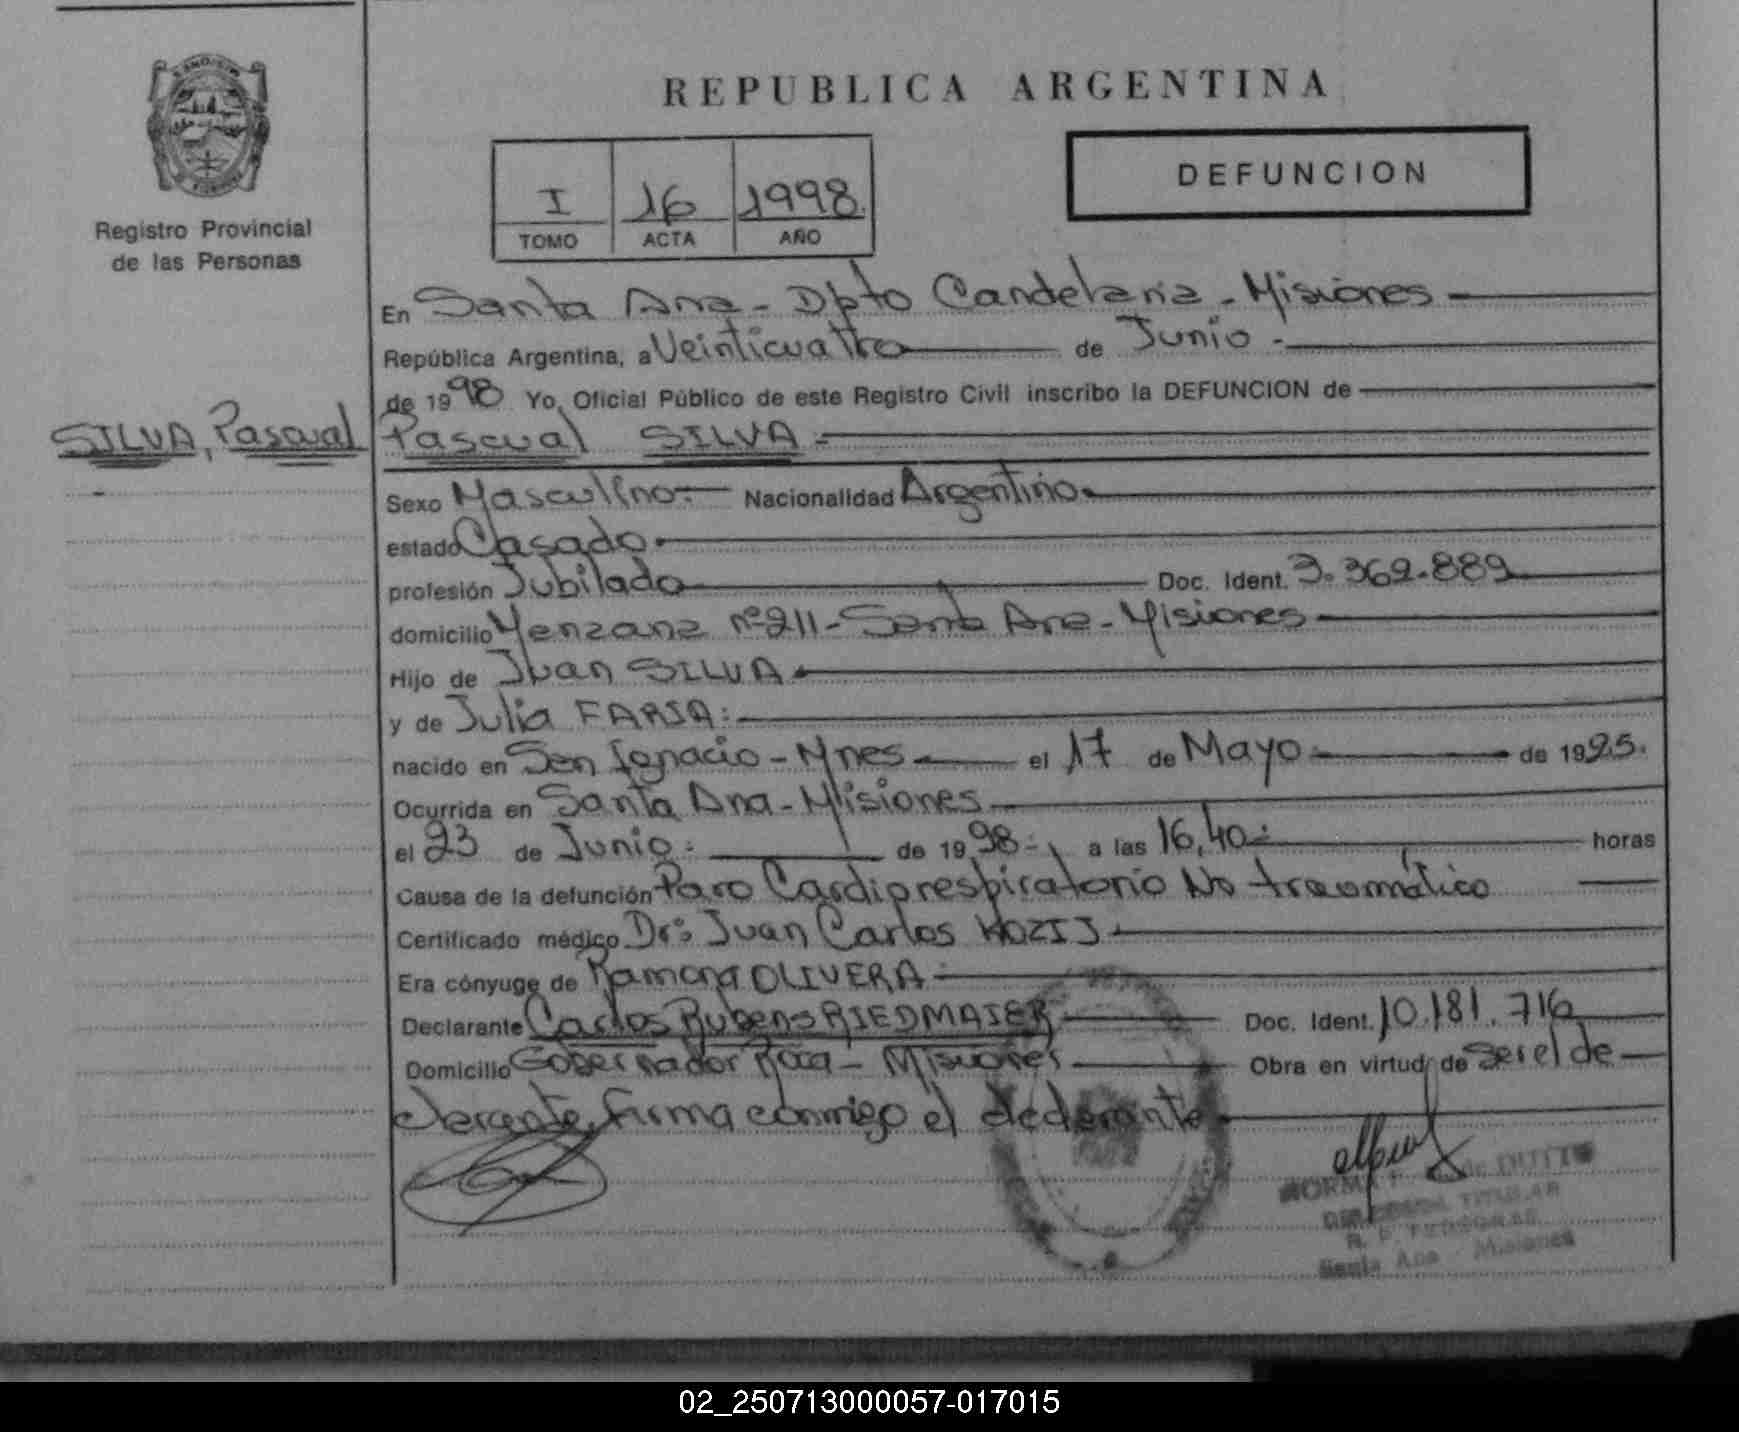 REPUBLICA ARGENTINA
Registro Provincial
de las Personas
I 16 1998
TOMO ACTA AÑO
DEFUNCION
En Santa Ana - Dpto Candelaria - Misiones
República Argentina, a Veinticuatro de Junio
de 1998 Yo, Oficial Público de este Registro Civil inscribo la DEFUNCION de
SILVA, Pascual
Pascual SILVA
Sexo Masculino Nacionalidad Argentino
estado Casado
profesión Jubilado Doc. Ident. 3.369.889
domicilio Manzana nº 211 - Santa Ana - Misiones
Hijo de Juan SILVA
y de Julia FARIA
nacido en San Ignacio - Mnes el 17 de Mayo de 1925.
Ocurrida en Santa Ana - Misiones
el 23 de Junio de 1998 a las 16,40 horas
Causa de la defunción Paro Cardiorespiratorio No traumático
Certificado médico Dr: Juan Carlos KOZIJ
Era cónyuge de Ramona OLIVERA
Declarante Carlos Rubens RIEDMAIER Doc. Ident. 10.181.716
Domicilio Gobernador Roca - Misiones Obra en virtud de ser el de
clarante, firma conmigo el declarante
NORMA de DUTTO
TITULAR
Santa Ana - Misiones
02_250713000057-017015